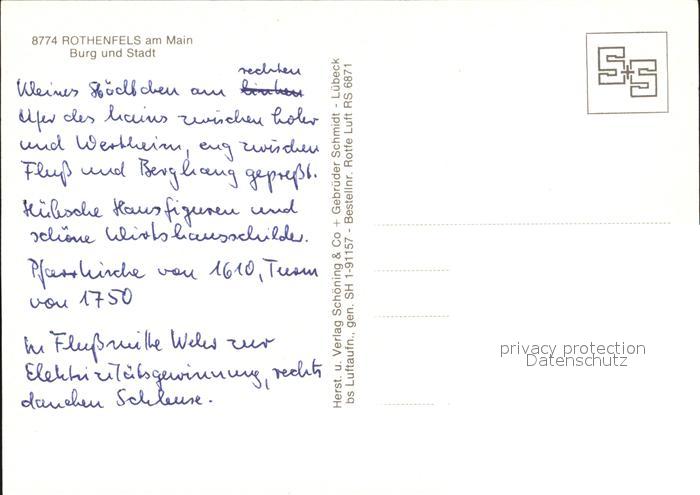 8774 ROTHENFELS am Main
Burg und Stadt
rechten
Kleines Städtchen am linken
Ufer des Mains zwischen Lohr
und Wertheim, eng zwischen
Fluß und Berghang gepreßt.
Hübsche Hausfiguren und
schöne Wirtshausschilder.
Pfarrkirche von 1610, Turm
von 1750
In Flußmitte Wehr zur
Elektrizitätsgewinnung, rechts
daneben Schleuse.
Herst. u. Verlag Schöning & Co + Gebrüder Schmidt - Lübeck
bs Luftaufn., gen. SH 1-91157 - Bestellnr. Rotfe Luft RS 6871
S+S
privacy protection
Datenschutz